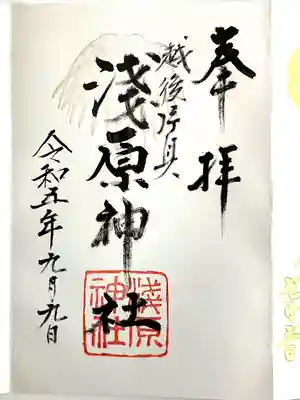 奉拝
越後片貝
浅原神社
令和五年九月九日
浅原
神社